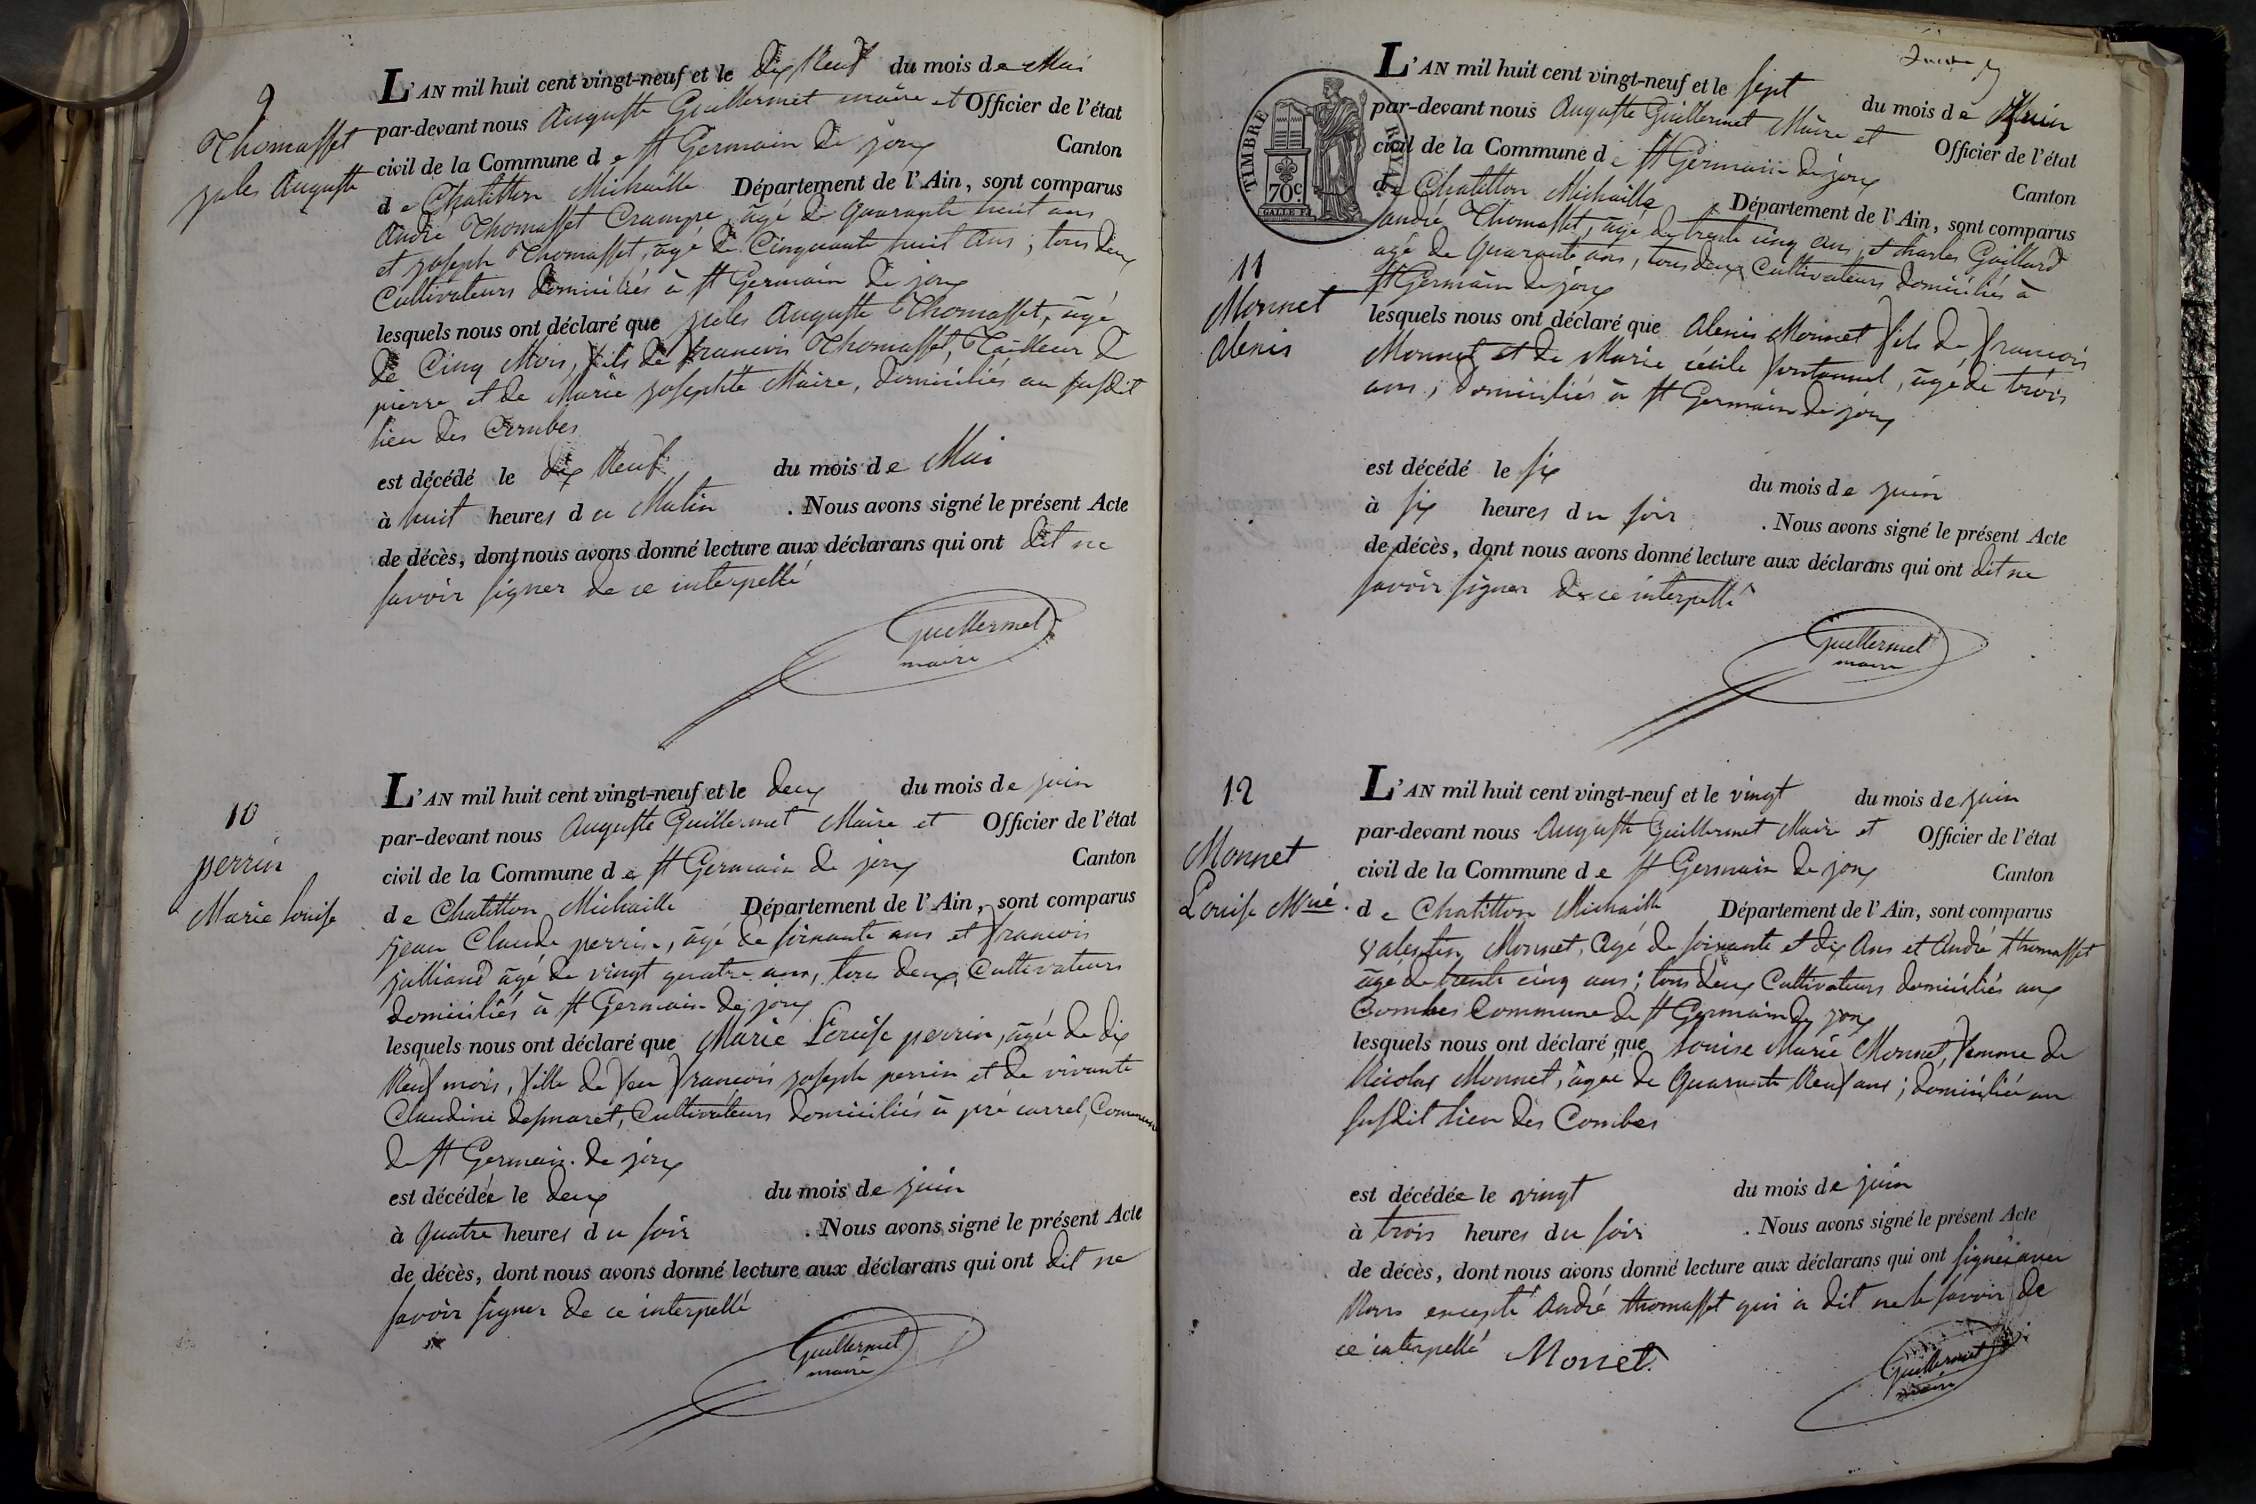 9
Thomasset
jules Auguste
L'AN mil huit cent vingt-neuf et le dix Neuf du mois de Mai
par-devant nous Auguste Guillermet maire et Officier de l'état
civil de la Commune de St Germain de joux Canton
de Chatillon Michaille Département de l'Ain, sont comparus
André Thomasset Crampe, âgé de Quarante huit ans
et joseph Thomasset, âgé de Cinquante huit Ans; tous deux
Cultivateurs domiciliés à St Germain de joux
lesquels nous ont déclaré que jules Auguste Thomasset, âgé
de Cinq Mois, fils de francois Thomasset, Tailleur de
pierre et de Marie josephte Maire, domiciliés au susdit
lieu des Combes
est décédé le dix Neuf du mois de Mai
à huit heures du Matin . Nous avons signé le présent Acte
de décès, dont nous avons donné lecture aux déclarans qui ont dit ne
savoir signer de ce interpellé
Guillermet
maire
10
perrin
Marie louise
L'AN mil huit cent vingt-neuf et le deux du mois de juin
par-devant nous Auguste Guillermet Maire et Officier de l'état
civil de la Commune de St Germain de joux Canton
de Chatillon Michaille Département de l'Ain, sont comparus
jean Claude perrin, âgé de soixante ans et francois
julliand âgé de vingt quatre ans, tous deux Cultivateurs
domiciliés à St Germain de joux
lesquels nous ont déclaré que Marie Louise perrin, âgée de dix
Neuf mois, fille de feu francois joseph perrin et de vivante
Claudine desmaret, Cultivateurs domiciliés à pré carrel, Commune
de St Germain de joux
est décédée le deux du mois de juin
à Quatre heures du soir . Nous avons signé le présent Acte
de décès, dont nous avons donné lecture aux déclarans qui ont dit ne
savoir signer de ce interpellé
Guillermet
maire
TIMBRE ROYAL
70c
GALLE F.
11
Monnet
alexis
L'AN mil huit cent vingt-neuf et le sept du mois de juin
par-devant nous Auguste Guillermet Maire et Officier de l'état
civil de la Commune de St Germain de joux Canton
de Chatillon Michaille Département de l'Ain, sont comparus
andré Thomasset, âgé de trente cinq ans, et charles Gaillard
agé de Quarante ans, tous deux Cultivateurs domiciliés à
St Germain de joux
lesquels nous ont déclaré que alexis Monnet fils de francois
Monnet et de Marie cécile, âgé de trois
ans, domiciliés à St Germain de joux
est décédé le six du mois de juin
à six heures du soir . Nous avons signé le présent Acte
de décès, dont nous avons donné lecture aux déclarans qui ont dit ne
savoir signer de ce interpellé
Guillermet
maire
12
Monnet
Louise Marie.
L'AN mil huit cent vingt-neuf et le vingt du mois de juin
par-devant nous Auguste Guillermet Maire et Officier de l'état
civil de la Commune de St Germain de joux Canton
de Chatillon Michaille Département de l'Ain, sont comparus
valentin Monnet, âgé de soixante et dix Ans et André thomasset
âgé de trente cinq ans; tous deux Cultivateurs domiciliés aux
Combes Commune de St Germain de joux
lesquels nous ont déclaré que louise Marie Monnet, femme de
Nicolas Monnet, âgée de Quarante Neuf ans; domiciliée au
susdit lieu des Combes
est décédée le vingt du mois de juin
à trois heures du soir . Nous avons signé le présent Acte
de décès, dont nous avons donné lecture aux déclarans qui ont signé avec
Nous excepté André thomasset qui a dit ne le savoir de
ce interpellé Monet.
Guillermet
maire